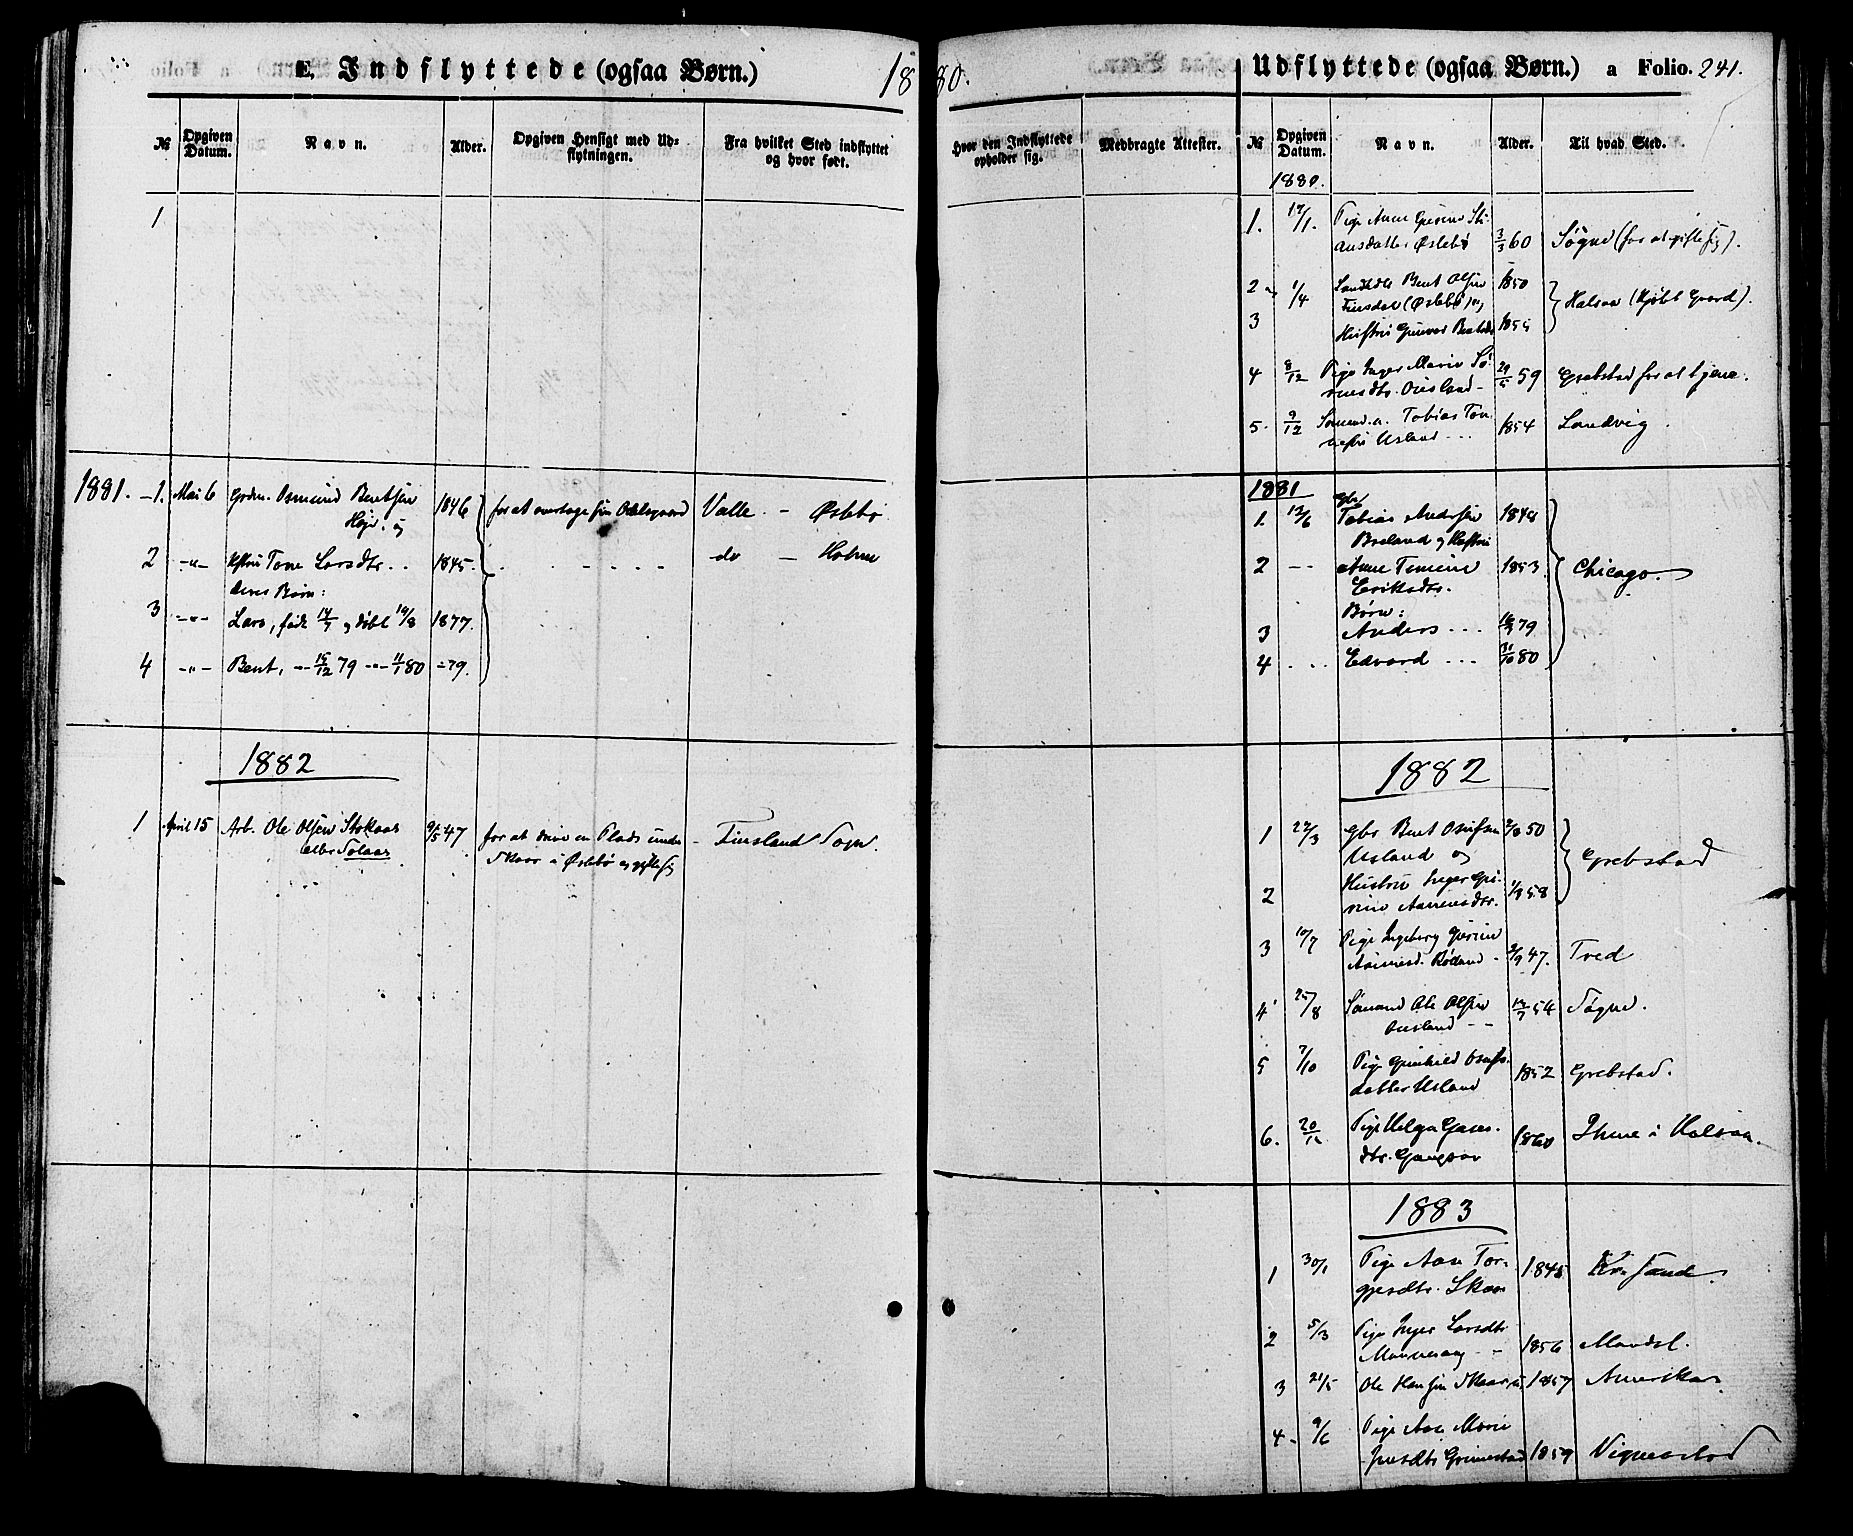 E. Indflyttede (ogsaa Børn.)
1880.
№
Opgiven Datum.
Navn.
Alder.
Opgiven Hensigt med Udflytningen.
Fra hvilket Sted indflyttet og hvor født.
Hvor den Indflyttede opholder sig.
Medbragte Attester.
1
1881. - 1. Mai 6 Grdm. Osmund Bentsen 1846 for at overtage sin Odelsgaard Valle - Øslebø
og
2 -"- Hstru Tone Larsdtr. 1845. do - Holme
deres Børn:
3 -"- Lars, født 14/7 og døbt 19/8 1877.
4 -"- Bent, -"- 15/12 79 -"- 11/1 80 = 79.
1882
1 April 15 Arb. Ole Olsen Stokaas 9/5 47 for at drive en Plads under - Finsland Sogn.
eller Solaas Skaar i Øslebø og gifte sig
Udflyttede (ogsaa Børn.) a Folio. 241.
№
Opgiven Datum.
Navn.
Alder.
Til hvad Sted.
1880.
1. 17/1. Pige Anne
Øslebø 3/3 60 Søgne (for at gifte sig).
2 1/4 Bent Olsen 1850
(Øslebø) og Halsaa (kjøbt Gaard).
3 Hustru Gunvor
4 8/12 Pige Inger Marie Sø-
rensdtr. Ousland 29/5 59 Grebstad for at tjene.
5. 9/12 Sømand Tobias Tøn-
nesen Usland 1854 Landvig.
1881
1. 13/6 Gbr Tobias Andersen 1848
Breland og Hustru
2 -- Anne Tomine 1853. Chicago.
Eriksdtr.
Børn:
3 Anders 79
4 Edvard 31/10 80
1882
1 27/3 Gbr Bent Osufsen 50
Usland og Grebstad
2 Hustru Inger
58
3 10/7 Pige Ingeborg 47. Tred
4 25/8 Sømand Ole Olsen 54 Søgne.
Ousland --
5 7/10 Pige Gunhild Osufs-
datter Usland 1852 Grebstad.
6. 20/12 Pige Helga
1860 Ihme i Halsaa.
1883
1 30/1 Pige Aase Tor-
gjersdtr. Skaar 1845 Kr.sand.
2 5/3 Pige Inger Larsdtr
1856 Mandal.
3 21/5 Ole Hansen Skaar 1857 Amerika.
4 - 9/6 Pige Aase Marie
Jensdtr Grimestad 1859 Vigmostad